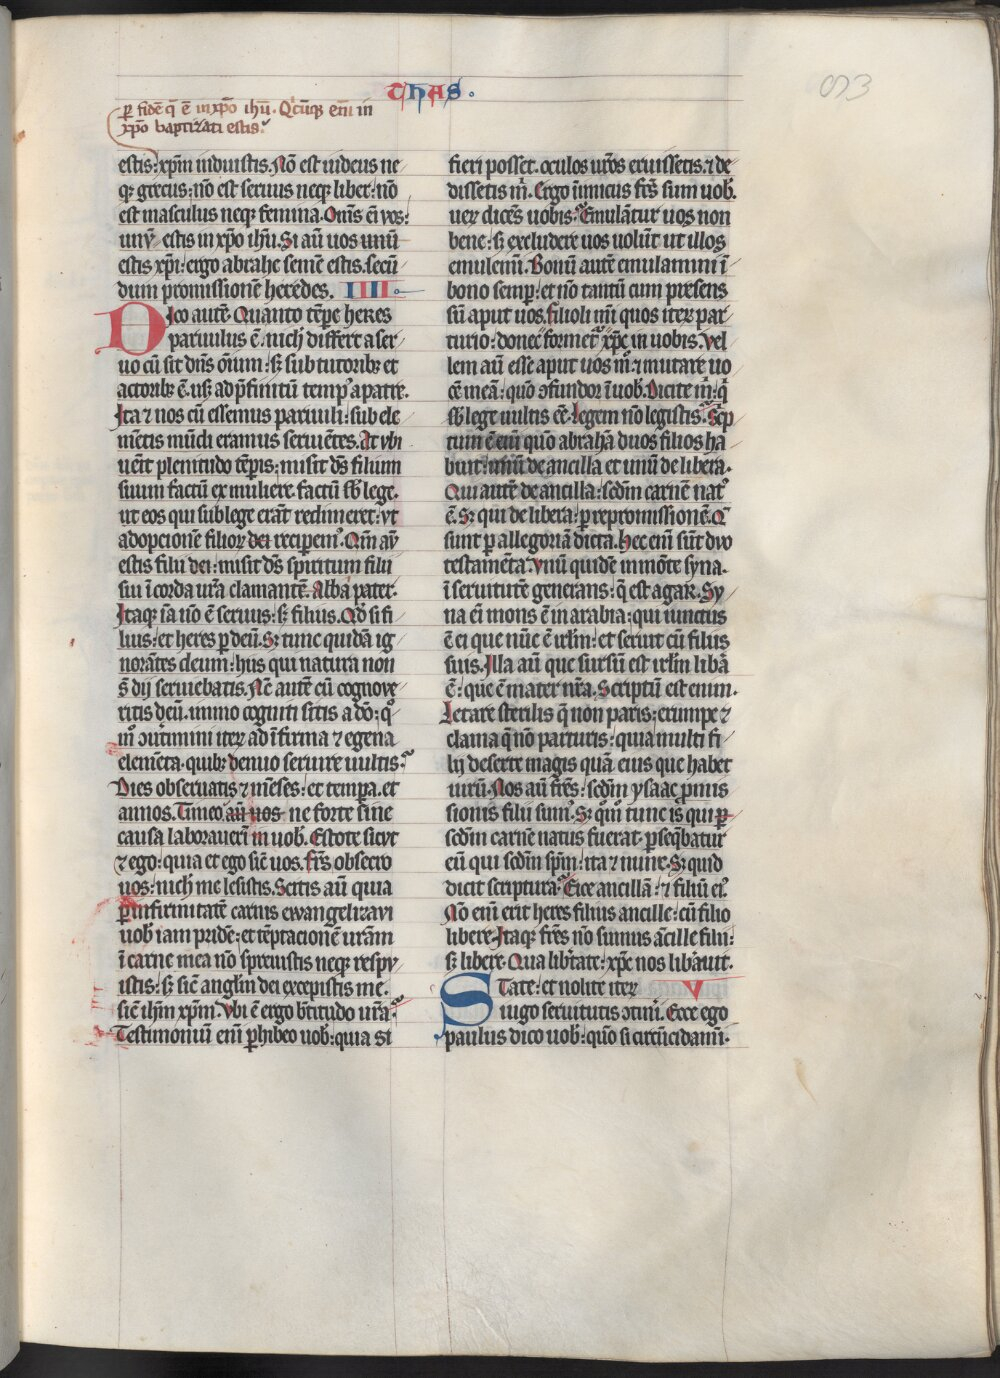 thas.
093
ꝑ fidē q̄ ē in xp̄o ih̄u. Qͥcūqꝫ em̄ in
xp̄o baptizati estis.
estis: xp̄m induistis. Nō est iudeus ne
qꝫ grecus: nō est seruus neqꝫ liber: nō
est masculus neqꝫ femina. Om̄s em̄ vos:
unꝰ estis in xp̄o ih̄u. Si aūt uos unū
estis xp̄i: ergo abrahe semē estis. secū
dum promissionē heredes. IIII.
Dico autē. Quanto tēpe heres
paruulus ē: nich̄ differt a ser
uo cū sit dn̄s om̄ium: sꝫ sub tutoribꝫ et
actoribꝫ ē. usqꝫ ad p̄finitū tempꝰ a patre.
Ita ⁊ nos cū essemus paruuli: sub ele
mētis mūdi eramus seruiētes. At vbi
uēit plenitudo tēpis: misit dS̄ filium
suum factū ex muliere. factū sb̄ lege.
ut eos qui sub lege erāt redimeret: vt
adopcionē filioꝝ dei recipem̄ꝰ. Qm̄ aūt
estis filii dei: misit dS̄ spiritum filii
sui ī corda ur̄a clamantē. Abba pater.
Itaqꝫ iā nō ē seruus: sꝫ filius. Qd̄ si fi
lius: et heres ꝑ deū. Sꝫ tunc quidā ig
norātes deum: hiis qui natura non
sūt dij seruiebatis. Nūc autē cū cognoue
ritis deū. immo cogniti sitis a do: qͦ
mͦ ꝯuertimini iteꝝ ad īfirma ⁊ egena
elemēta. quibꝫ denuo seruire uultis?
Dies obseruatis ⁊ mēses: et tempa. et
annos. Timeo aūt uos ne forte sine
causa laborauerī in uob̄. Estote sicut
⁊ ego: quia et ego sic̄ uos. Fr̄s obsecro
uos: nich̄ me lesistis. Scitis aūt quia
ꝑ infirmitatē carnis ewangelizaui
uob̄ iam pridē: et tēptacionē urām
ī carne mea nō spreuistis neqꝫ respu
istis: sꝫ sic̄ angl̄m dei excepistis me.
sic̄ ih̄m xp̄m. Vbi ē ergo bt̄itudo ur̄a?
Testimoniū em̄ ꝑhibeo uob̄: quia si
fieri posset. oculos ur̄os eruissetis. ⁊ de
dissetis m̄. Ergo inimicus fr̄s sum uob̄.
ueꝝ dicēs uobis? Emulātur uos non
bene: sꝫ excludere uos uolūt ut illos
emulem̄. Bonū autē emulamini ī
bono semp: et nō tantū cum presens
sū aput uos. filioli mi quos iteꝝ par
turio: donec formet̄ xp̄c in uobis. Vel
lem aūt esse aput uos mͦ: ⁊ mutare uo
cē meā: quō ꝯfundor ī uob̄. Dicite m̄: q̄
sb̄ lege uultis eē. legem nō legistis? Scp
tum ē em̄ quō abrahā duos filios ha
buit: unū de ancilla et unū de libera.
Qui autē de ancilla: sc̄dm carnē natꝰ
ē. Sꝫ qui de libera: ꝑ repromissionē. Q̄
sunt ꝑ allegoriā dicta. Hec em̄ sūt duo
testamēta. Vnū quidē in mōte syna.
ī seruitutē generans: q̄ est agar. Sy
na em̄ mons ē in arabia: qui iunctus
ē ei que nūc ē irl̄m: et seruit cū filiis
suis. Illa aūt que sursū est irl̄m libā
ē: que ē mater nr̄a. Scriptū est enim.
Letare sterilis q̄ non paris: erumpe ⁊
clama q̄ nō parturis: quia multi fi
lij deserte magis quā eius que habet
uirū. Nos aūt fr̄es: sc̄dm ysaac ꝓmis
sionis filii sum̄ꝰ. Sꝫ quō tunc is qui
sc̄dm carnē natus fuerat: ꝑseq̄batur
eū qui sc̄dm sp̄m: ita ⁊ nunc. Sꝫ quid
dicit scriptura? Eice ancillā: ⁊ filiū eiꝰ.
Nō em̄ erit heres filius ancille: cū filio
libere. Itaqꝫ fr̄es nō sumus ācille filii:
sꝫ libere. Qua lib̄tate: xp̄c nos lib̄auit.
State: et nolite iteꝝ V
iugo seruitutis ꝯtin̄i. Ecce ego
paulus dico uob̄: quō si circūcidami.